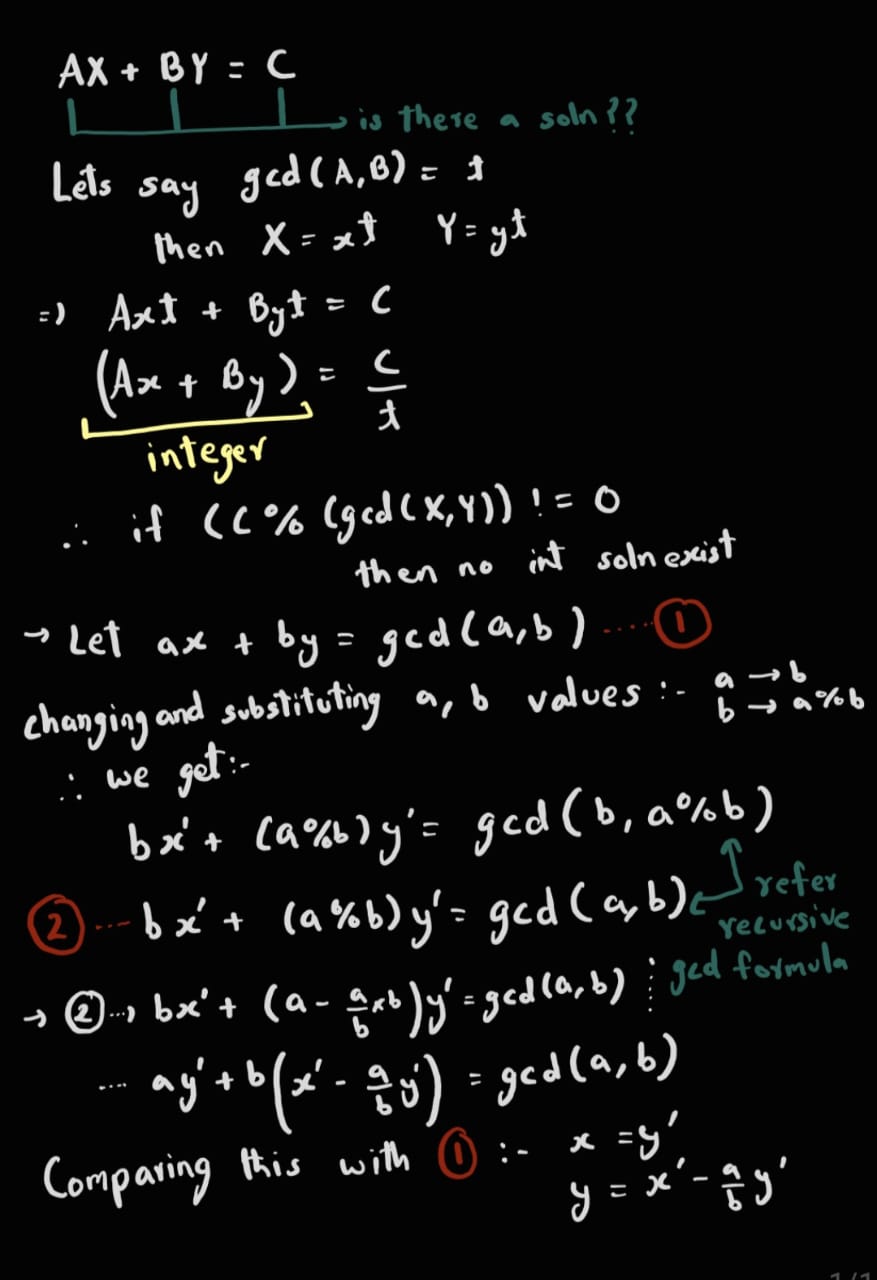 AX + BY = C
is there a soln??
Lets say gcd(A,B) = t
then X = xt Y = yt
=) Axt + Byt = C
(Ax + By) = C/t
integer
∴ if (C % (gcd(X,Y)) != 0
then no int soln exist
→ Let ax + by = gcd(a,b) ..... ①
changing and substituting a, b values :- a → b
b → a%b
∴ we get:-
bx' + (a%b)y' = gcd(b, a%b)
② ... bx' + (a%b)y' = gcd(a,b)
refer
recursive
gcd formula
→ ② ...→ bx' + (a - a/b × b)y' = gcd(a,b)
.... ay' + b(x' - a/b y') = gcd(a,b)
Comparing this with ① :- x = y'
y = x' - a/b y'